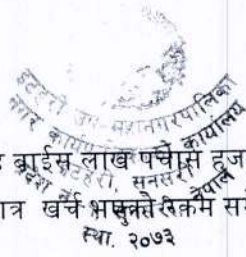 इटहरी उप-महानगरपालिका
नगर कार्यपालिकाको कार्यालय
इटहरी, सुनसरी
नेपाल
बाईस लाख पचास हजा
मात्र खर्च भएको रकम
स्था. २०७३